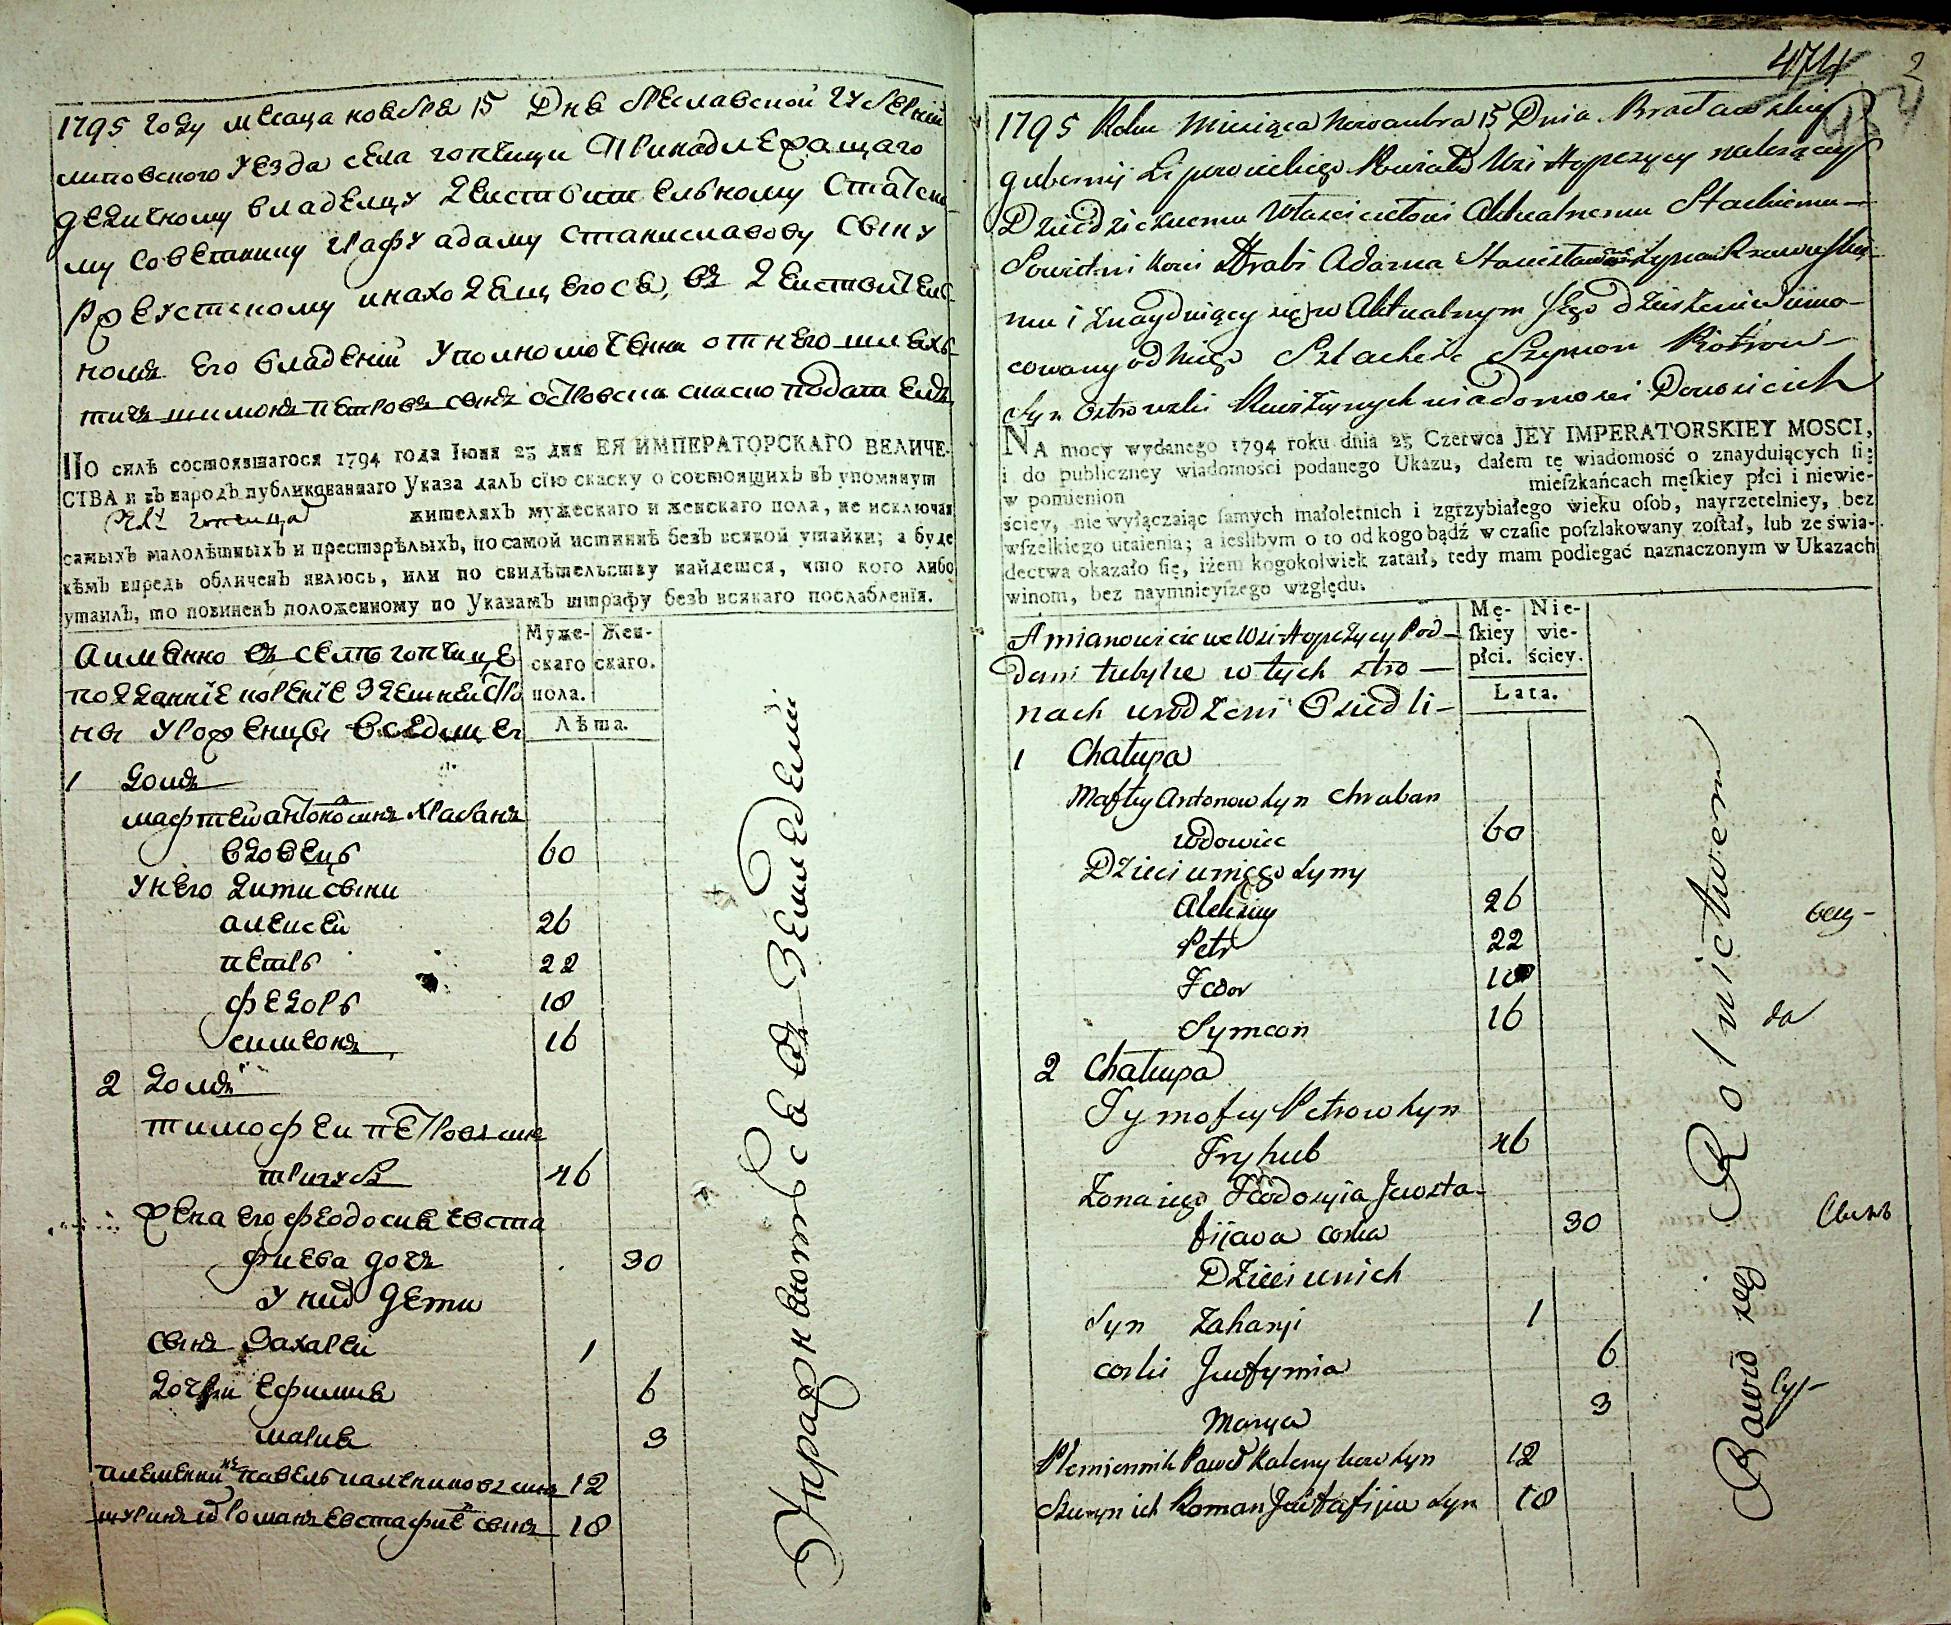 1795 году месаца ноабра 15 Дна браславской губерний
липовского уезда села гопчици принадлежащаго
дедичному владелцу действителному статско-
му советнику графу адаму станиславову сыну
ржевускому инаходащегоса въ действител-
номъ его владений уполномоченни от него шлах-
тичъ шимонъ петровъ сынъ островски
По силѣ состоявшагося 1794 года Іюня 23 дня ЕЯ ИМПЕРАТОРСКАГО ВЕЛИЧЕ-
СТВА и въ народъ публикованнаго Указа далъ сїю скаску о состоящихъ въ упомянут
жителяхъ мужескаго и женскаго пола, не исключая
самыхъ малолѣтныхъ и престарѣлыхъ, по самой истиннѣ безъ всякой утайки; а буде
кѣмъ впредь обличенъ явлюсь, или по свидѣтельству найдется, что кого либо
утаилъ, то повиненъ положенному по Указамъ штрафу безъ всякаго послабленїя.
аименно въ селѣ гопчице
подданніе
ни уроженци
Муже-
скаго
пола.
Жен-
скаго.
Лѣта.
1 домъ
мафтей антоновъ синъ храбанъ
вдовецъ 60
у него дити сыни
алексей 26
петръ 22
федоръ 18
симеонъ 16
2 домъ
тимофеи петровъ синъ
тригуб 46
жена его феодосиа евста
фиева дочъ 30
у них дети
сынъ захарей 1
дочери ефимиа 6
мариа 3
племенникъ павелъ калениковъ синъ 12
шуринъ романъ евстафие сынъ 18
Упражнюютьса въ Земледелии
474
2
1795 Roku Miesiąca Nowambra 15 Dnia Bracławskiey
gubernij Lipowieckiego Powiatu Wsi Hopczycy należącey
Dziedzicznemu Włascicielowi Aktualnemu Stackiemu
Sowietnikowi Hrabi Adama Stanisława Synowi Rzewuskie-
mu i znayduiący się w Aktualnym Jego
cowany od Niego Szlachcic Szymon Piotrow
Syn Ostrowski
NA mocy wydanego 1794 roku dnia 23 Czerwca JEY IMPERATORSKIEY MOSCI,
i do publiczney wiadomości podanego Ukazu, dałem tę wiadomość o znayduiących ſię
w pomienion mieſzkańcach męſkiey płci i niewie-
ściey, nie wyłączaiąc ſamych małoletnich i zgrzybiałego wieku oſob, nayrzetelniey, bez
wſzelkiego utaienia; a ieslibym o to od kogo bądź w czaſie poſzlakowany zoſtał, lub ze świa-
dectwa okazało ſię, iżem kogokolwiek zataił, tedy mam podlegać naznaczonym w Ukazach
winom, bez naymnieyſzego względu.
Amianowicie we Wsi Hopczycy Pod-
dani tubylce w tych stro-
nach urodzeni Osiedli-
Mę-
ſkiey
płci.
Nie-
wie-
ściey.
Lata.
1 Chałupa
Maftey Antonow Syn Chraban
wdowiec 60
Dzieci u niego Syny
Alekziey 26
Petr 22
Fedor 18
Symeon 16
2 Chałupa
Tymofey Petrow Syn
Tryhub 46
Zona iego Feodosyia Jewsta-
fijawa corka 30
Dzieci u nich
Syn Zaharyi 1
corki Jewfymia 6
Marya 3
Plemiennik Paweł Kalenykow Syn 12
Szuryn ich Roman Jewstafijew Syn 18
Bawią się Rolnictwem
да